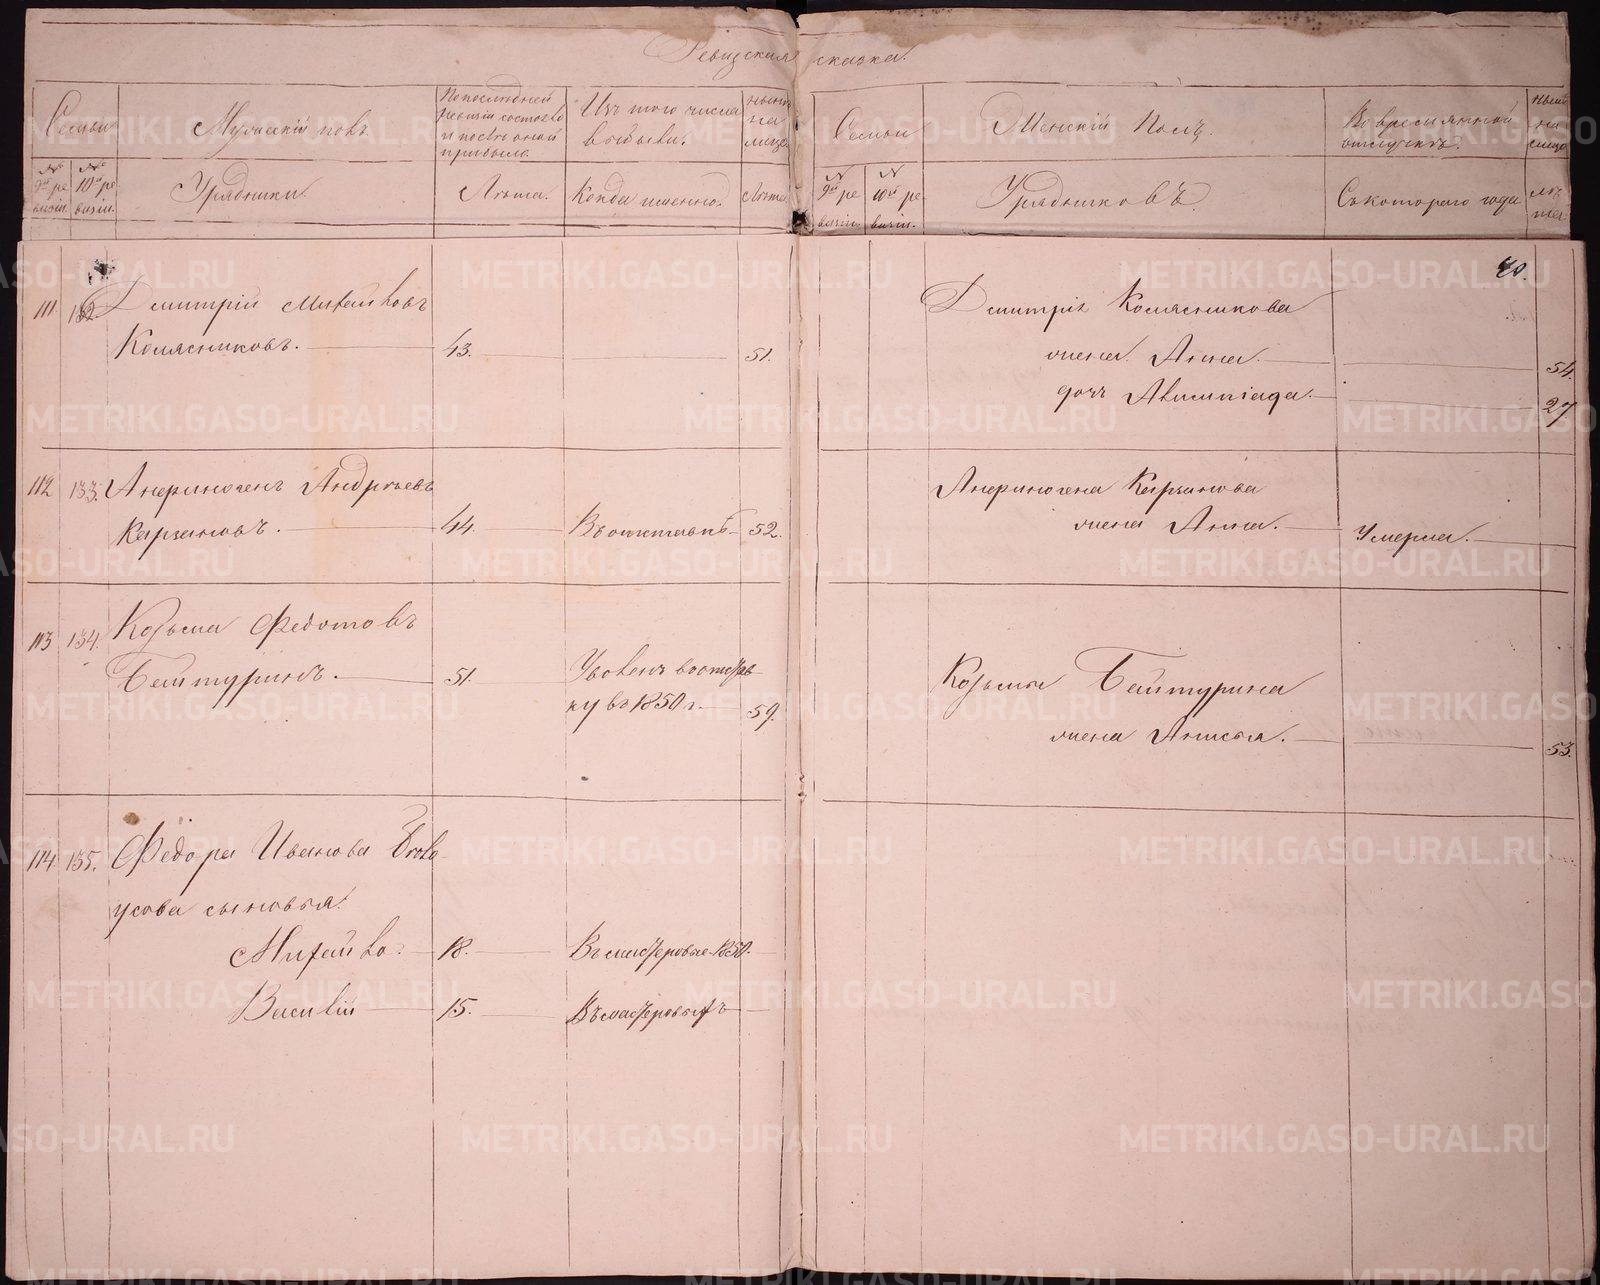 Ревизская сказка.
Семьи
Мужескій полъ
По последней ревизіи состояло и после оной прибыло.
Изъ того числа выбыли.
ныне на лицо
Семьи
Женскій Полъ.
Во временной отлучке.
ныне на лицо
№ 9ой ревизіи.
№ 10ой ревизіи.
Урядники.
Лета.
Когда именно.
Лета
№ 9ой ревизіи.
№ 10ой ревизіи.
Урядниковъ.
Съ котораго года
лета
40.
111
132
Дмитрій Михайловъ
Колясниковъ.
43.
51.
Дмитрія Колясникова
жена Анна.
54.
дочь Авимпіада.
27
112
133.
Анфиногенъ Андреевъ
Каргановъ.
44.
Въ отставке
52.
Анфиногена Карганова
жена Анна.
Умерла.
113
134.
Козьма Федотовъ
Байтуринъ.
51.
Уволенъ в отстав
ку въ 1850 г.
59.
Козьмы Байтурина
жена Анисья.
53.
114
135.
Федора Иванова Бело
усова сыновья:
Михайло.
18.
Въ мастеровые 1850.
Василій
15.
Въ мастеровыхъ
METRIKI.GASO-URAL.RU